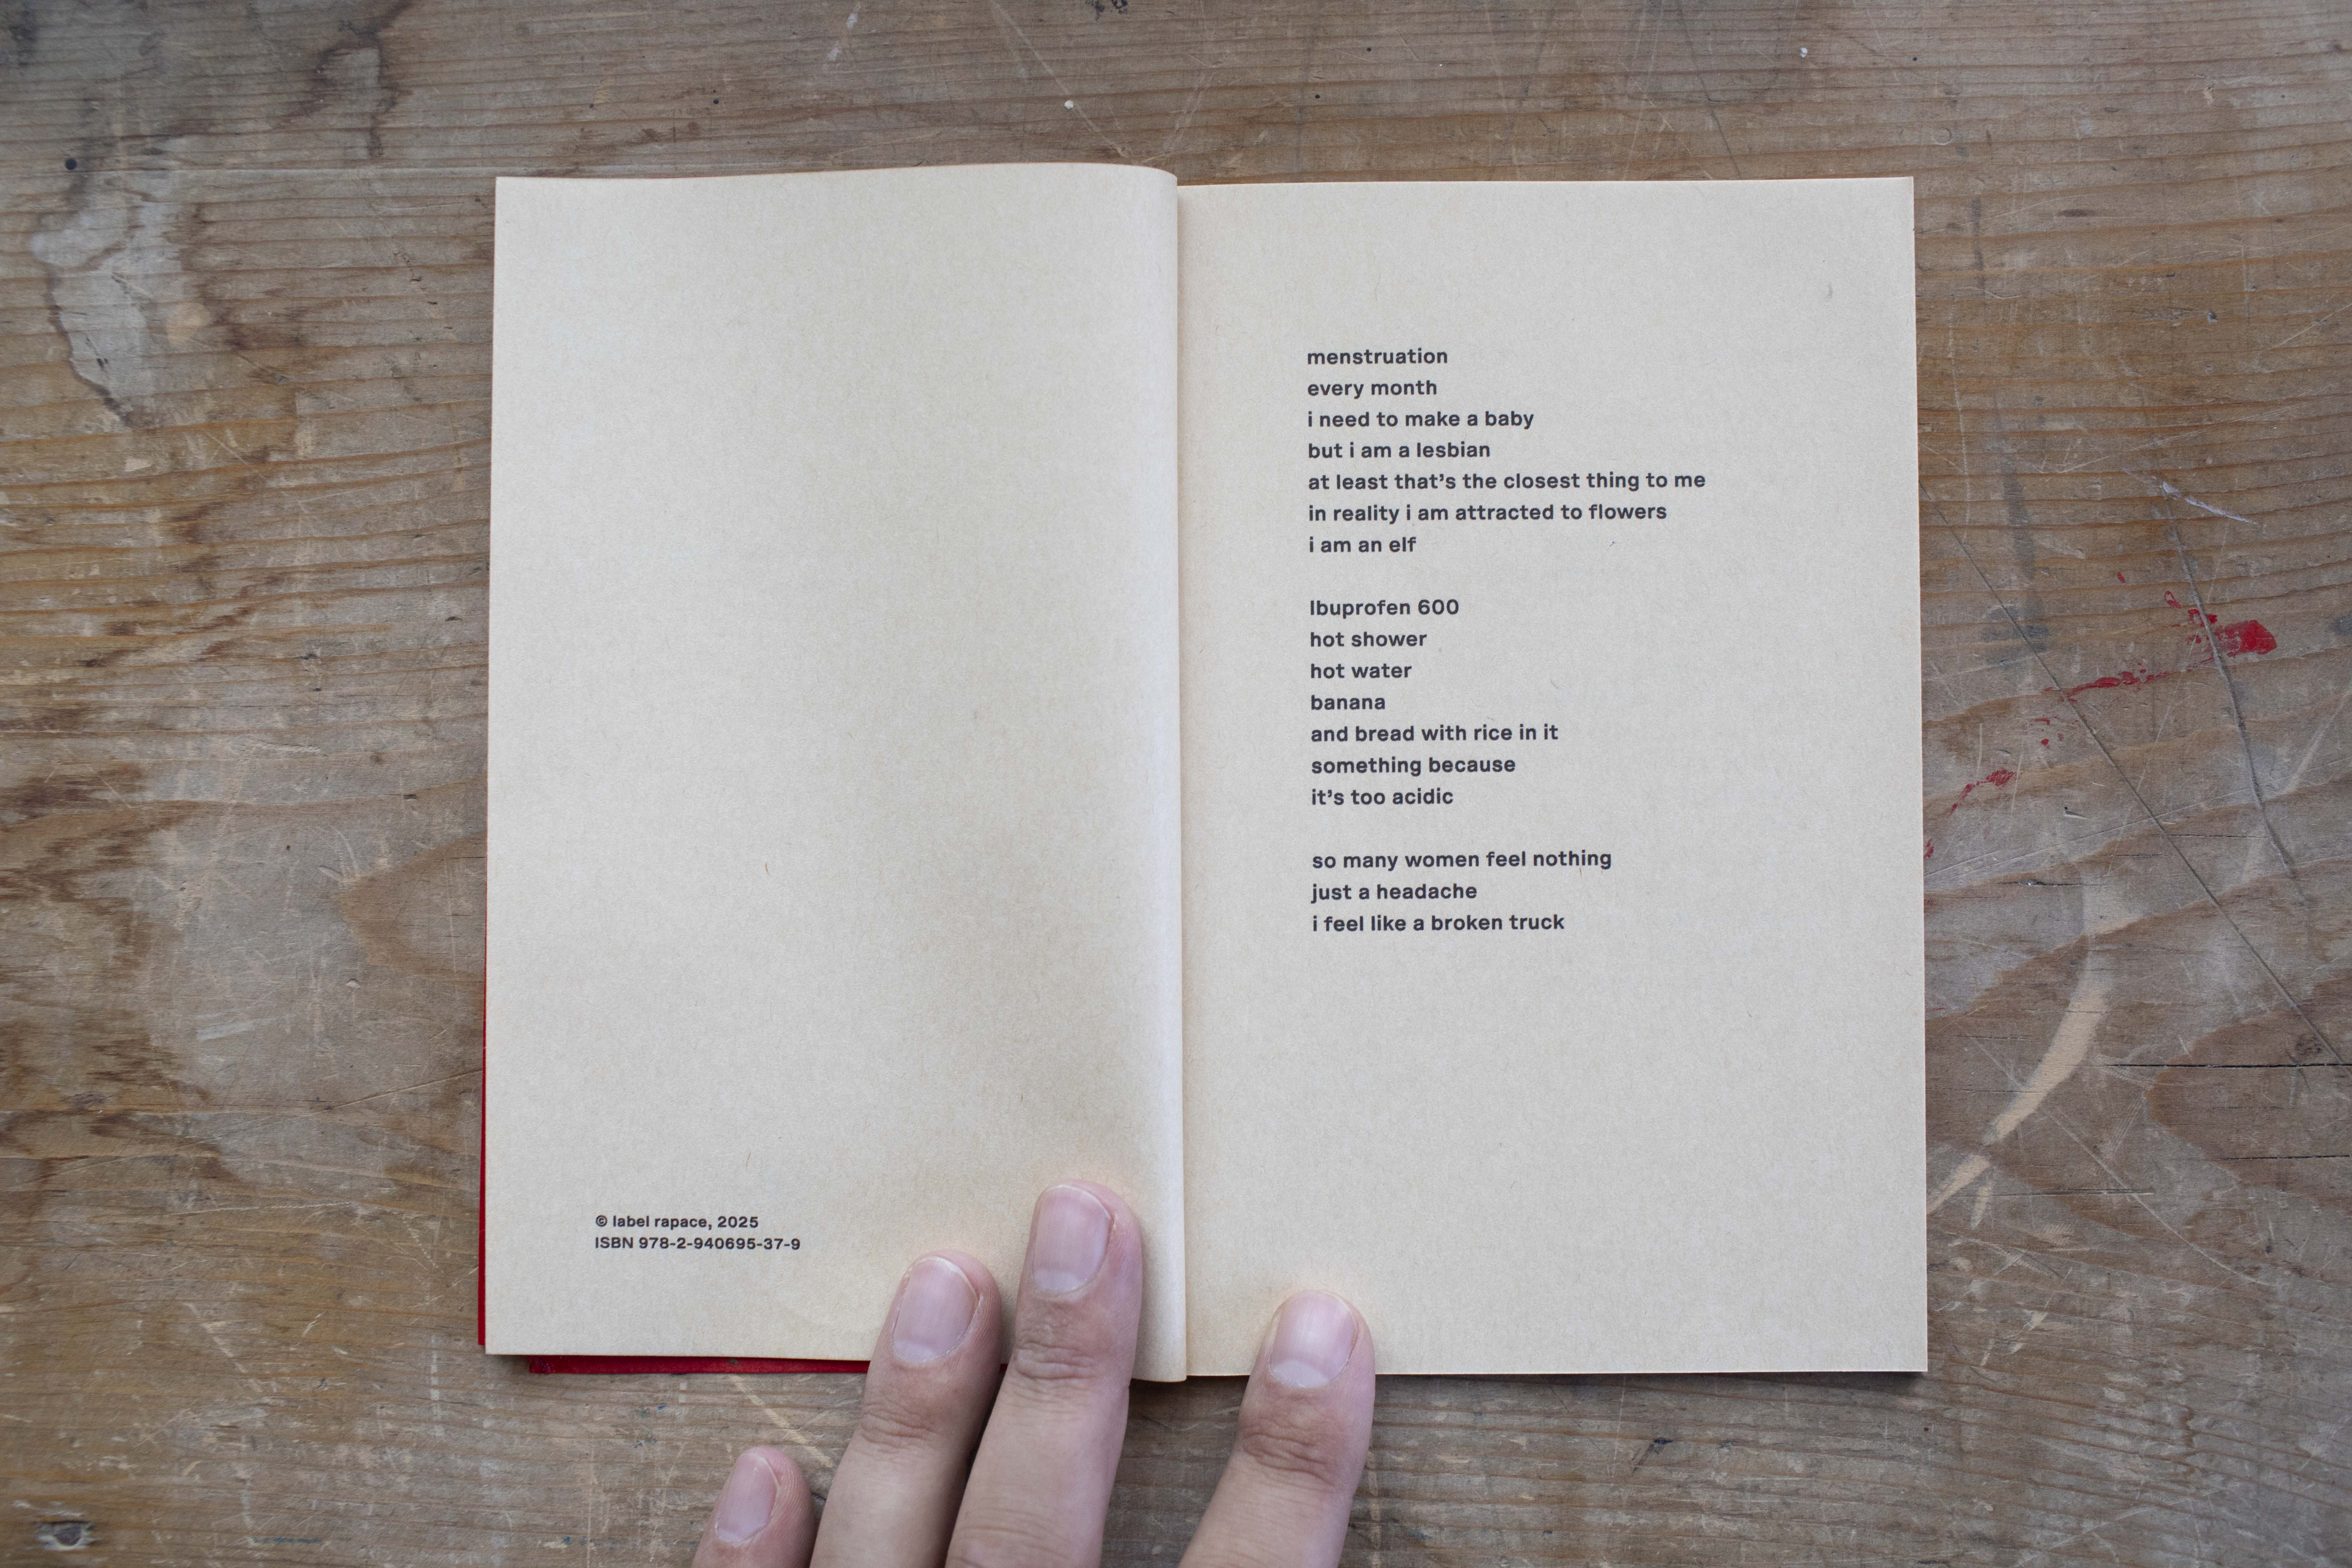 © label rapace, 2025
ISBN 978-2-940695-37-9
menstruation
every month
i need to make a baby
but i am a lesbian
at least that’s the closest thing to me
in reality i am attracted to flowers
i am an elf
Ibuprofen 600
hot shower
hot water
banana
and bread with rice in it
something because
it’s too acidic
so many women feel nothing
just a headache
i feel like a broken truck